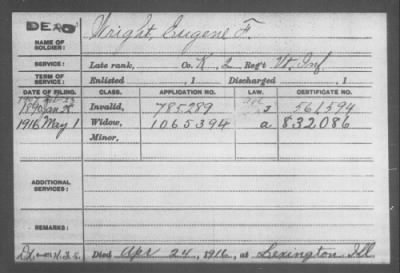 DEAD
NAME OF SOLDIER: Wright, Eugene F.
SERVICE: Late rank, Co. K, 2 Reg't Vt. Inf
TERM OF SERVICE: Enlisted , 1 Discharged , 1
DATE OF FILING. CLASS. APPLICATION NO. LAW. CERTIFICATE NO.
1890 Jan Invalid, 785289 561594
1916 May 1 Widow, 1065394 a 832086
Minor,
ADDITIONAL SERVICES:
REMARKS:
Died Apr 24, 1916, at Lexington Ill